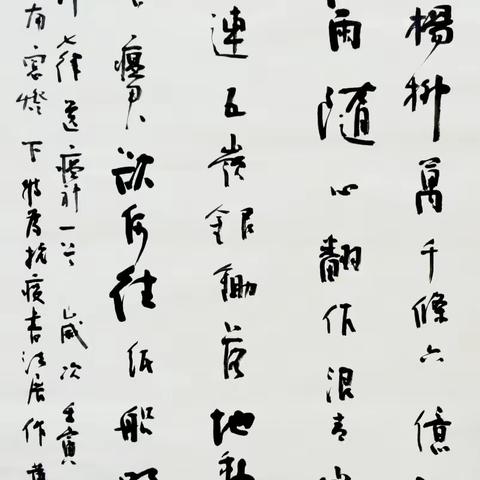 楊柳萬千條六億
雨隨心翻作浪青
連五嶺銀鋤落地動
瘟君欲何往紙船
七律送瘟神一首歲次壬寅
燈下特為抗疫書法展作